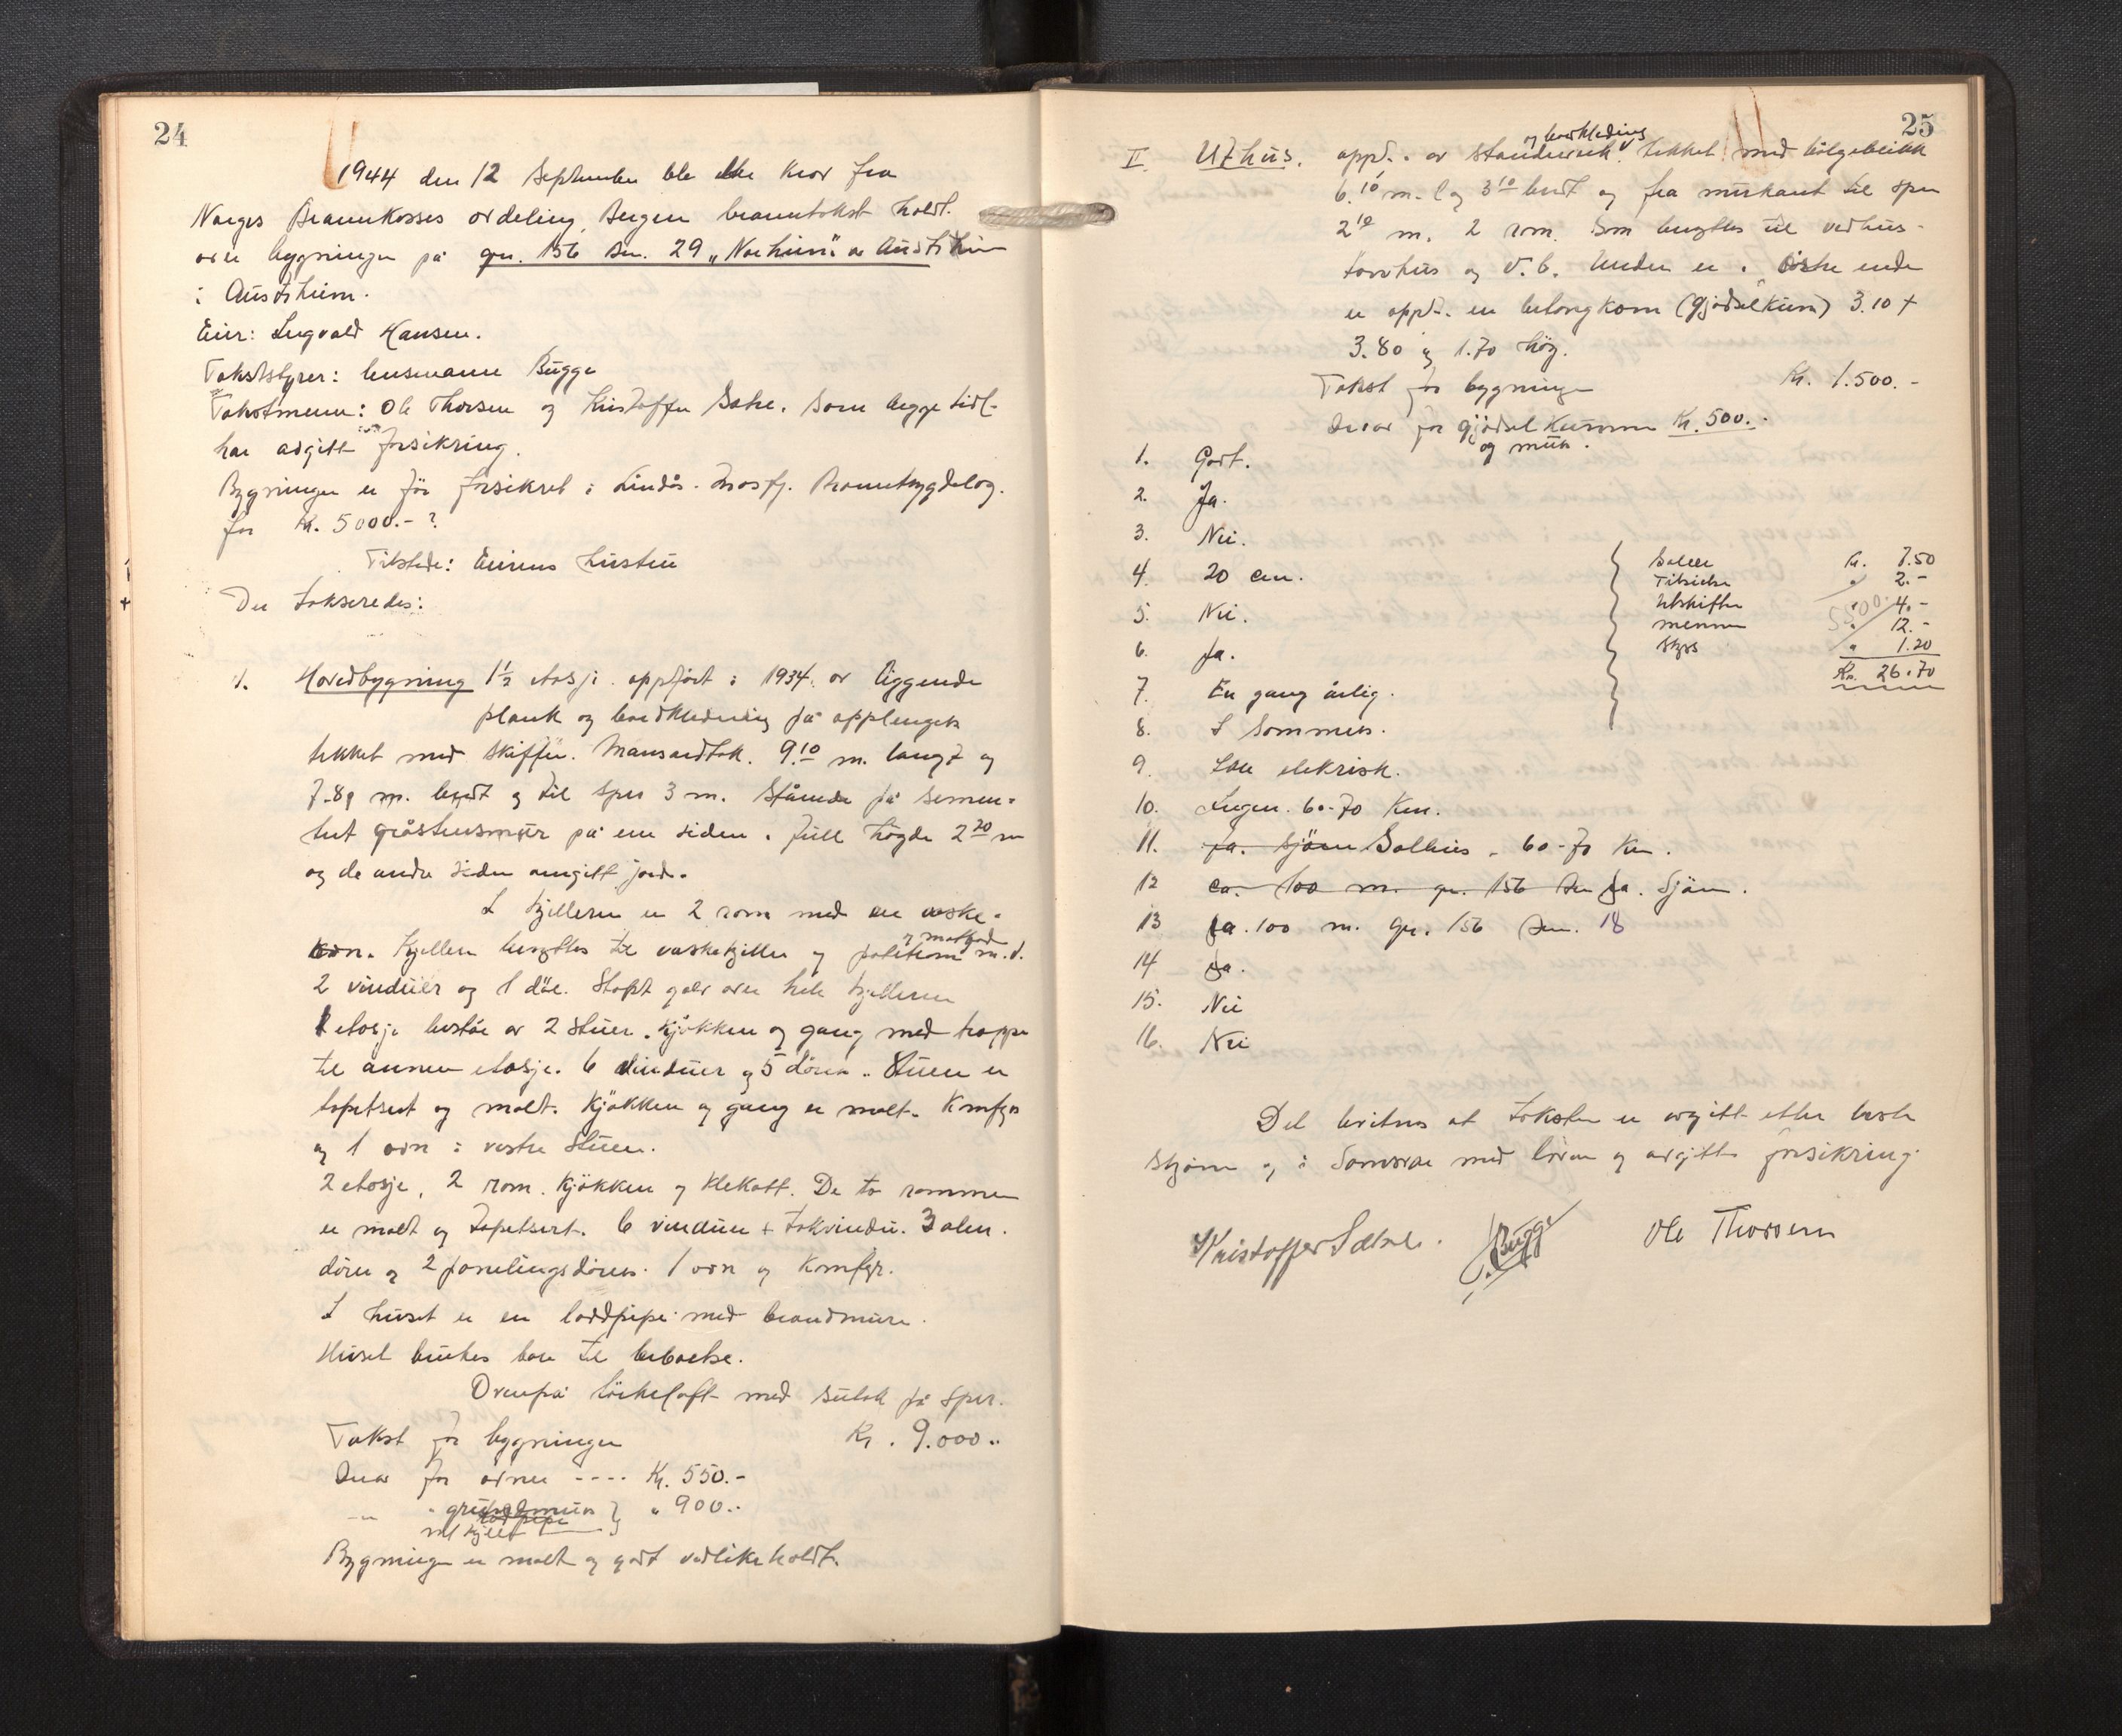 24
1944 den 12 September ble etter krav fra
Norges Brannkasses avdeling, Bergen branntakst holdt
over bygninger på gnr. 156 bnr. 29 „Norheim" av Austrheim
i Austrheim.
Eier: Ingvald Hansen.
Takststyrer: lensmann Bugge
Takstmenn: Ole Thorsen og Kristoffer Sætre. Som begge tidl.
har avgitt forsikring.
Bygningen er før forsikret i Lindås-Masfj. Brannbygdelag.
for Kr. 5000.- ?
Tilstede: Eierens hustru
Der takseredes:
1. Hovedbygning 1½ etasje oppført i 1934 av liggende
plank og bordkledning på opplengers
tekket med skiffer. Mansardtak. 9.10 m. langt og
7.80 m. bredt og til sper 3 m. Stående på semen-
tert gråstensmur på ene siden i full høgde 2 20 m
og de andre sider omgitt jord.
I kjelleren er 2 rom med en vaske-
ovn. Kjelleren benyttes til vaskekjeller og potetrom og matbod m.v.
2 vinduer og 1 dör. Støpt golv over hele kjelleren
1 etasje består av 2 stuer. Kjøkken og gang med trappe
til annen etasje. 6 vinduer og 5 dører. Stuen er
tapetsert og malt. Kjøkken og gang er malt. Komfyr
og 1 ovn i vestre stuen.
2 etasje, 2 rom. Kjøkken og klekott. De to rommene
er malt og tapetsert. 6 vinduer + takvindu. 3 alm.
dører og 2 panelingsdører. 1 ovn og komfyr.
I huset er en loddpipe med brandmurer.
Huset brukes bare til beboelse.
Ovenpå tørkeloft med sutak på sper.
Takst for bygningen Kr. 9.000.-
Derav for ovner ---- Kr. 550.-
-"- " grunnmuren } " 900.-
m/ kjeller
Bygningen er malt og godt vedlikeholdt.
25
II. Uthus. oppf. av standerverk og bordkledning tekket med bølgeblikk
6.10 m. l og 3 10 bredt og fra murkant til sper
2 10 m. 2 rom. Som benyttes til vedhus-
torvhus og V.C. Under er i østre ende
er oppf. en betongkom (gjødselkum) 3.10 +
3.80 og 1.70 høg.
Takst for bygningen Kr. 1.500.-
Derav for gjødselkummen Kr. 500.-
og mur.
1. Godt.
2. Ja.
3. Nei.
4. 20 cm.
5. Nei.
6. Ja.
7. En gang årlig.
8. I Sommers.
9. Som elektrisk.
10. Ingen. 60-70 Km.
11. Ja. Sjøen Solheis - 60-70 Km.
12 ca. 100 m. gr. 156 bnr Ja. Sjøen.
13 Ja. 100 m. gr. 156 bnr. 18
14 Ja.
15. Nei
16. Nei
Salær Kr. 7.50
Tilsidesa " 2.-
Utskrifter " 4.-
mennene " 12.-
Skyss " 1.20
Kr. 26.70
Det bevitnes at taksten er avgitt etter beste
skjønn og i samsvar med loven og avgitt forsikring.
Kristoffer Sætre. Bugge Ole Thorsen